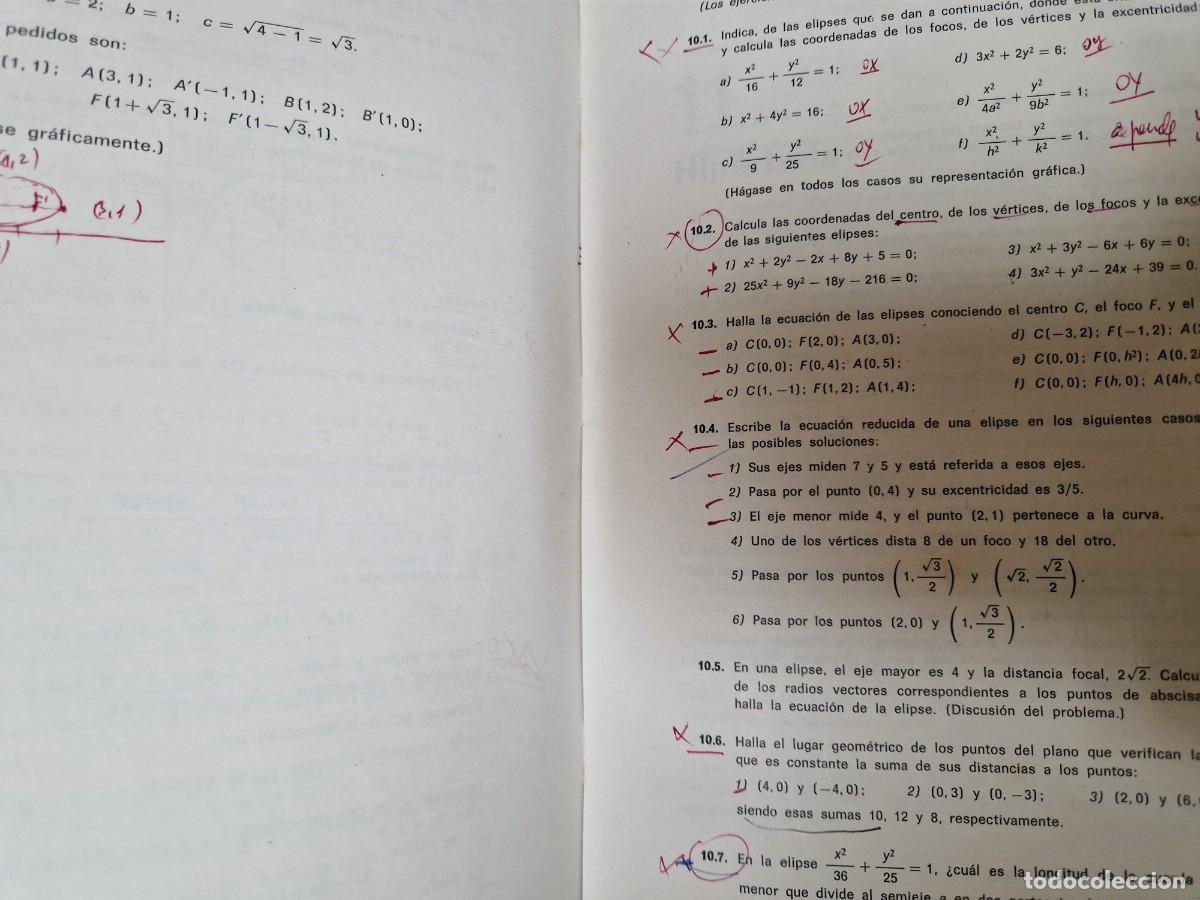 b = 1; c = √4 − 1 = √3.
pedidos son:
(1, 1); A(3, 1); A′(−1, 1); B(1, 2); B′(1, 0);
F(1 + √3, 1); F′(1 − √3, 1).
se gráficamente.)
F'
(3,1)
(Los
10.1. Indica, de las elipses que se dan a continuación, donde
y calcula las coordenadas de los focos, de los vértices y la excentricidad
a) x²/16 + y²/12 = 1; OX
d) 3x² + 2y² = 6; OY
b) x² + 4y² = 16; OX
e) x²/4a² + y²/9b² = 1; OY
c) x²/9 + y²/25 = 1; OY
f) x²/h² + y²/k² = 1.
(Hágase en todos los casos su representación gráfica.)
10.2. Calcula las coordenadas del centro, de los vértices, de los focos y la
de las siguientes elipses:
1) x² + 2y² − 2x + 8y + 5 = 0;
3) x² + 3y² − 6x + 6y = 0;
2) 25x² + 9y² − 18y − 216 = 0;
4) 3x² + y² − 24x + 39 = 0.
10.3. Halla la ecuación de las elipses conociendo el centro C, el foco F, y el
a) C(0, 0); F(2, 0); A(3, 0);
d) C(−3, 2); F(−1, 2);
b) C(0, 0); F(0, 4); A(0, 5);
e) C(0, 0); F(0, h²); A(0, 2
c) C(1, −1); F(1, 2); A(1, 4);
f) C(0, 0); F(h, 0); A(4h, 0
10.4. Escribe la ecuación reducida de una elipse en los siguientes casos
las posibles soluciones:
1) Sus ejes miden 7 y 5 y está referida a esos ejes.
2) Pasa por el punto (0, 4) y su excentricidad es 3/5.
3) El eje menor mide 4, y el punto (2, 1) pertenece a la curva.
4) Uno de los vértices dista 8 de un foco y 18 del otro.
5) Pasa por los puntos (1, √3/2) y (√2, √2/2).
6) Pasa por los puntos (2, 0) y (1, √3/2).
10.5. En una elipse, el eje mayor es 4 y la distancia focal, 2√2. Calcu
de los radios vectores correspondientes a los puntos de abscisa
halla la ecuación de la elipse. (Discusión del problema.)
10.6. Halla el lugar geométrico de los puntos del plano que verifican la
que es constante la suma de sus distancias a los puntos:
1) (4, 0) y (−4, 0); 2) (0, 3) y (0, −3); 3) (2, 0) y (6,
siendo esas sumas 10, 12 y 8, respectivamente.
10.7. En la elipse x²/36 + y²/25 = 1, ¿cuál es la longitud de la cuerda
menor que divide al semieje a en dos
todocoleccion